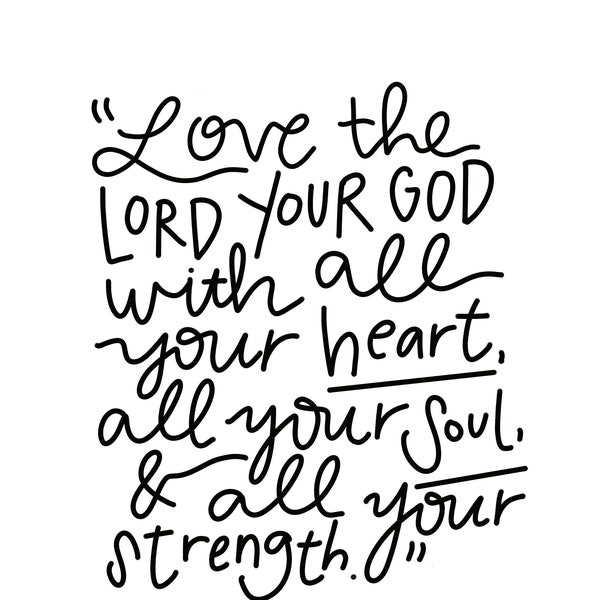 “Love the
LORD YOUR GOD
with all
your heart,
all your soul,
& all your
strength.”